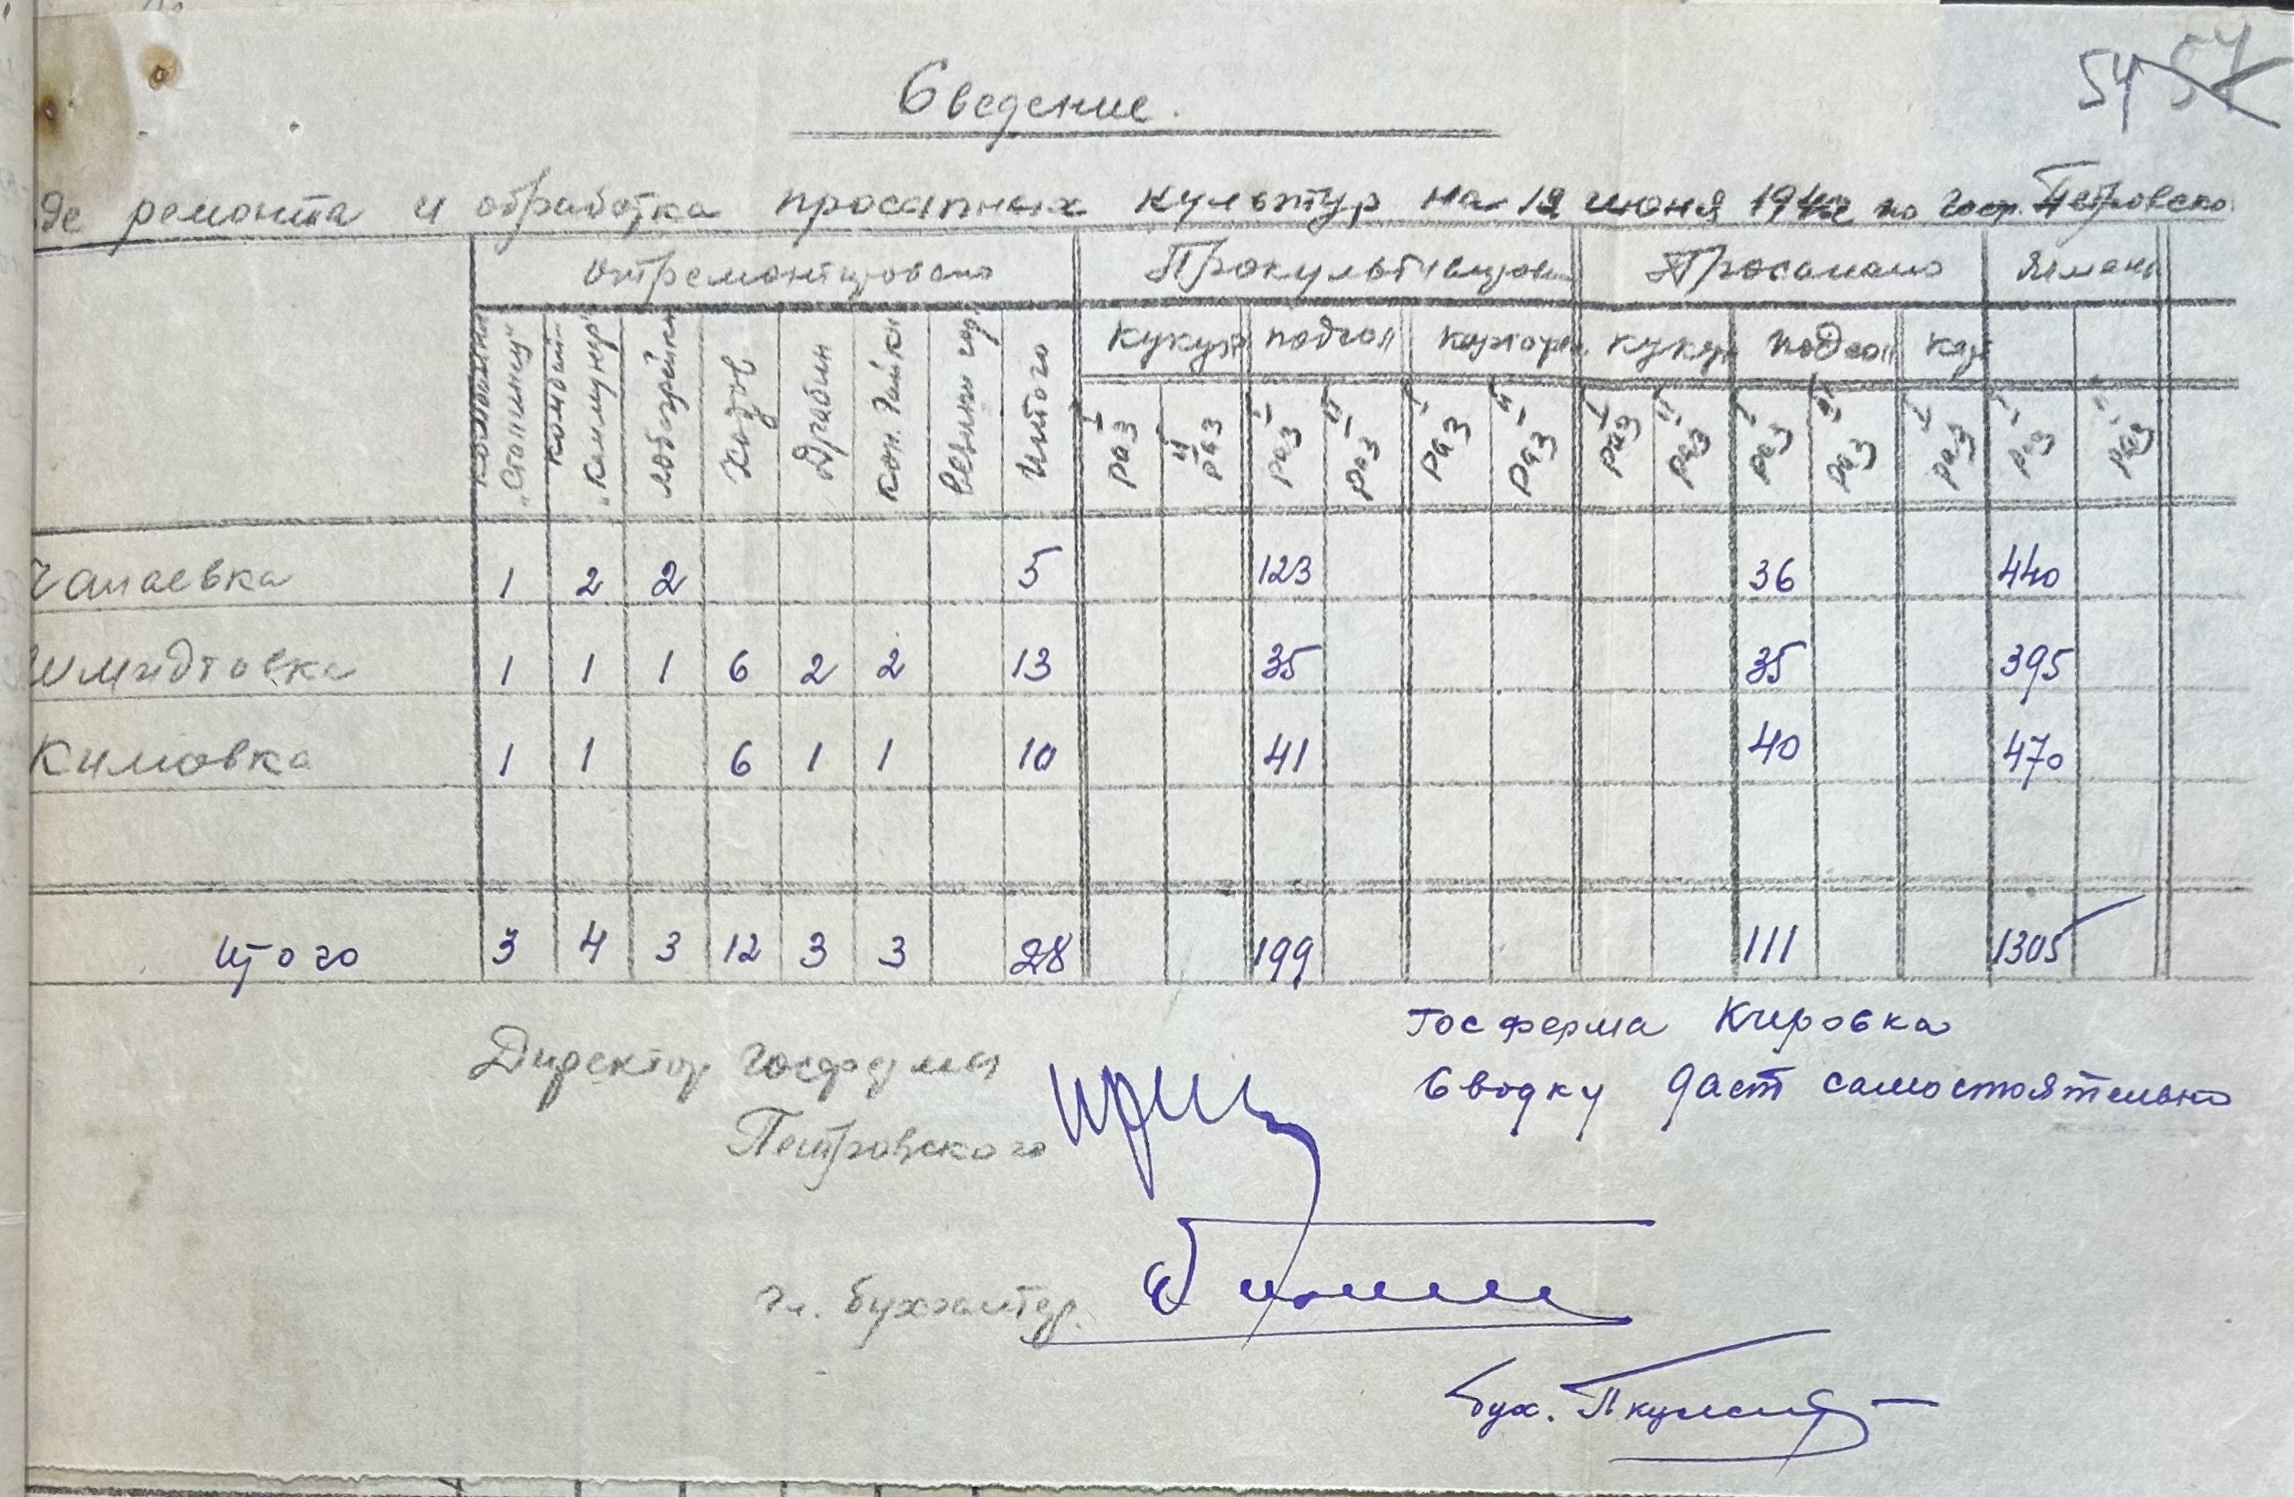 54 57
Сведение.
де ремонта и обработка просапных культур на 12 июня 1942 по госф. Петровско
отремонтировано Прокультивиров Просапано Ячмень
комбайн "Сталинец" комбайн "Коммунар" лобогрейки ходов Драбин кон. Грабли Сеялки Итого
кукур подсол картоф кукур подсол кар
I раз II раз I раз II раз I раз II раз I раз II раз I раз II раз I раз I раз II раз
Чапаевка 1 2 2 5 123 36 440
Шмидтовка 1 1 1 6 2 2 13 35 35 395
Кимовка 1 1 6 1 1 10 41 40 470
Итого 3 4 3 12 3 3 28 199 111 1305
Госферма Кировка
Директор госфермы
Сводку даст самостоятельно
Петровского
гл. бухгалтер.
Бух.